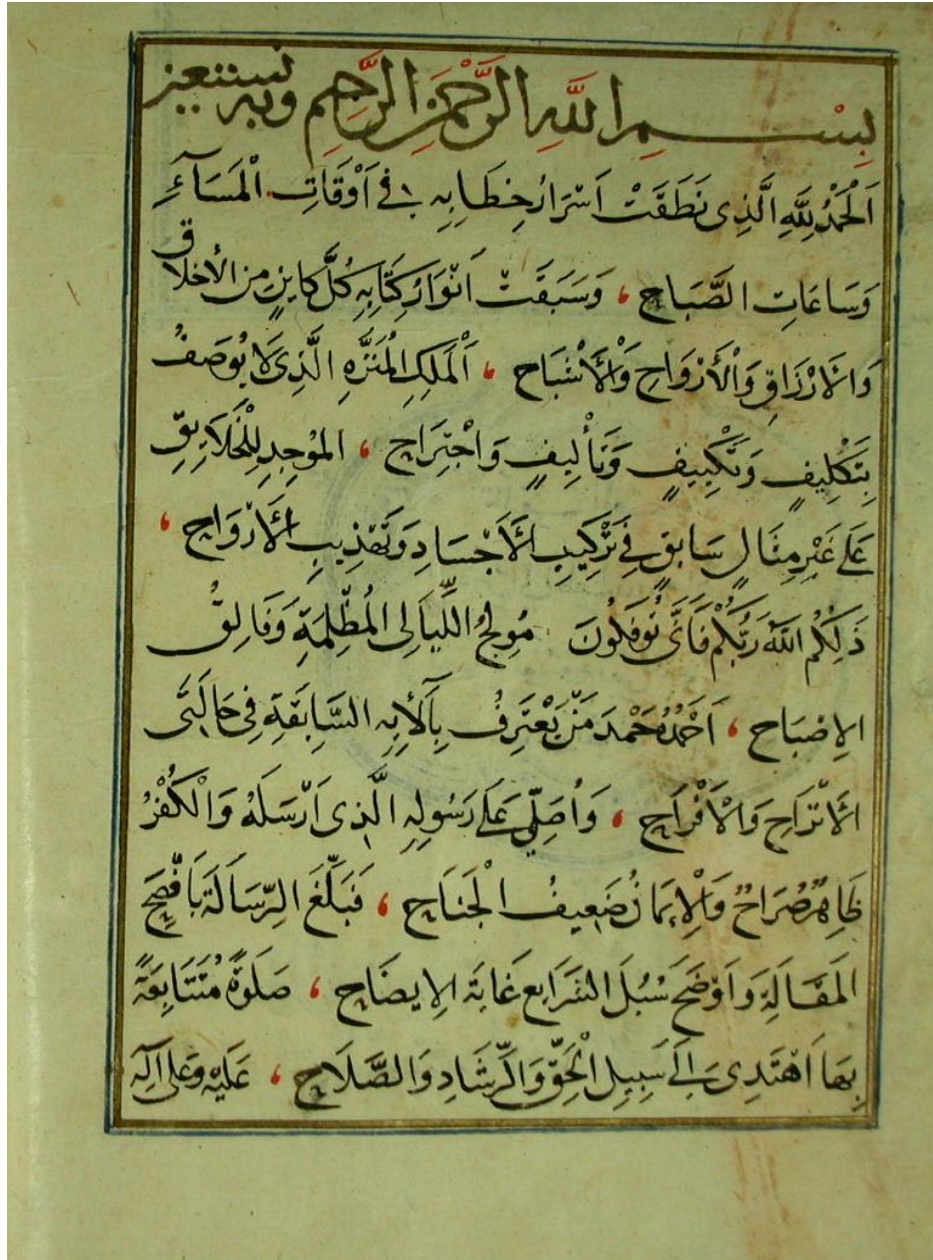 بِسْمِ اللَّهِ الرَّحْمَنِ الرَّحِيمِ وبه نستعين
اَلْحَمْدُ لِلَّهِ الَّذِى نَطَقَتْ اَسْرَارُ خِطَابِهِ فِى اَوْقَاتِ الْمَسَآءِ
وَسَاعَاتِ الصَّبَاحِ ، وَسَبَقَتْ اَنْوَارُ كِتَابِهِ كُلَّ كَايِنٍ من الأخلاق
وَالاَرْزَاقِ وَالْأَرْوَاحِ وَالْأَشْبَاحِ ، اَلْمَلِكِ الْمُنَزَّهِ الَّذِى لَا يُوصَفُ
بِتَكْلِيفٍ وَتَكْيِيفٍ وَتَأْلِيفٍ وَاجْتِرَاحٍ ، الْمُوجِدِ لِلْخَلَايِقِ
عَلَى غَيْرِ مِثَالٍ سَابِقٍ فِى تَرْكِيبِ الْأَجْسَادِ وَتَهْذِيبِ الْأَرْوَاحِ ،
ذَلِكُمُ اللَّهُ رَبُّكُمْ فَاَنَّى تُوفَكُونَ مُولِجُ اللَّيَالِى الْمُظْلِمَةِ وَفَالِقُ
الاِصْبَاحِ ، اَحْمَدُهُ حَمْدَ مَنْ يَعْتَرِفُ بِآلَايِهِ السَّابِقَةِ فِى حَالَتَىِ
الْأَتْرَاحِ وَالْأَفْرَاحِ ، وَاُصَلِّى عَلَى رَسُولِهِ الَّذِى اَرْسَلَهُ وَالْكُفْرُ
ظَاهِرٌ صُرَاحٌ وَالْاِيمَانُ ضَعِيفُ الْجَنَاحِ ، فَبَلَّغَ الرِّسَالَةَ بِاَفْصَحِ
الْمَقَالَةِ وَاَوْضَحَ سُبُلَ الشَّرَايِعِ غَايَةَ الاِيضَاحِ ، صَلَوةً مُتَتَابِعَةً
بِهَا اَهْتَدِى اِلَى سَبِيلِ الْحَقِّ وَالرَّشَادِ وَالصَّلَاحِ ، عَلَيْهِ وَعَلَى آلِهِ